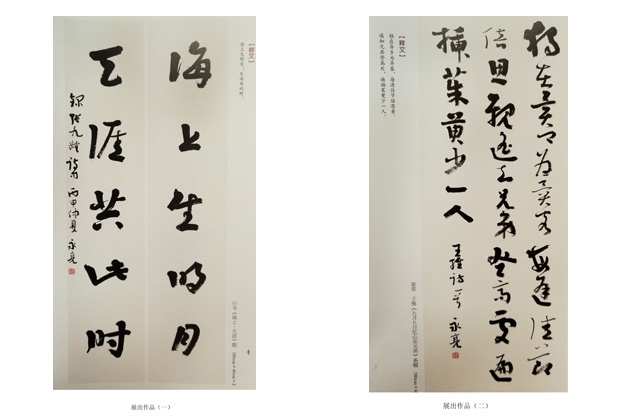 【释文】
海上生明月,天涯共此时。
海上生明月
天涯共此时
张九龄诗句 丙申仲夏 永亮
行书《海上·天涯》联
展出作品(一)
独在异乡为异客 每逢佳节
倍思亲 遥知兄弟登高处 遍
插茱萸少一人
王维诗一首 永亮
【释文】
独在异乡为异客,每逢佳节倍思亲。
遥知兄弟登高处,遍插茱萸少一人。
章草 王维《九月九日忆山东兄弟》条幅
展出作品(二)